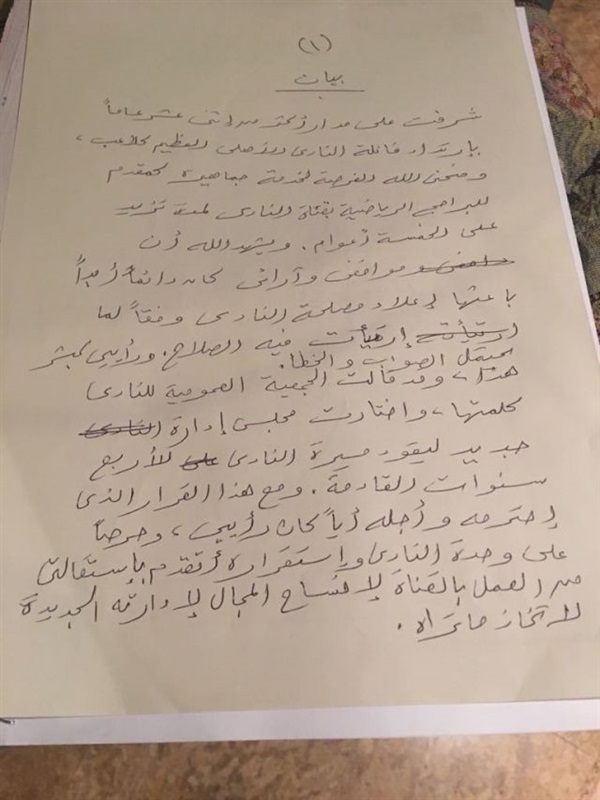 (١)
بيان
شرفت على مدار أكثر من اثنى عشر عاماً
بارتداء فانلة النادى الأهلى العظيم كلاعب ،
ومنحنى الله الفرصة لخدمة جماهيره كمقدم
للبرامج الرياضية بقناة النادى لمدة تزيد
على الخمسة أعوام . ويشهد الله أن
مواقفى وآرائى كان دائماً أبداً
باعثها إعلاء مصلحة النادى وفقاً لما
ارتيأت إرتيأت فيه الصلاح . ورأيى كبشر
يحتمل الصواب والخطأ .
هذا ، وقد قالت الجمعية العمومية للنادى
كلمتها ، واختارت مجلس إدارة النادى
جديد ليقود مسيرة النادى على للأربع
سنوات القادمة . ومع هذا القرار الذى
إحترمه وأجله أياً كان رأيى ، وحرصاً
على وحدة النادى وإستقراره أتقدم بإستقالتى
من العمل بالقناة لإفساح المجال لإدارته الجديدة
لاتخاذ ما تراه .